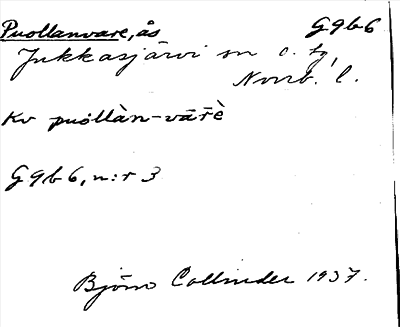 Puollanvare, ås G9b6
Jukkasjärvi sn o. tg,
Norrb. l.
Kv puollàn-vāřè
G9b6, n:r 3
Björn Collinder 1937.